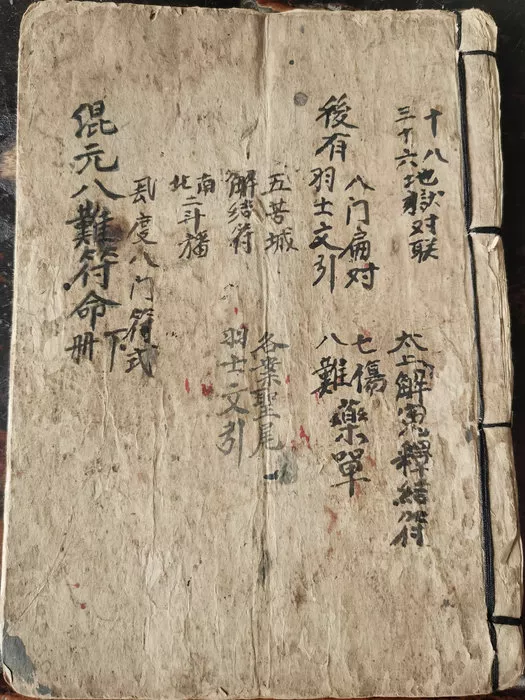 十八地獄对联
三十六地獄
太上解冤釋結符
後有羽士文引
八门扁对
七傷
八難
藥單
五苦城
解結符
南北二斗旛
各案聖尾
羽士文引
混元八難符命
下册
度八门符式